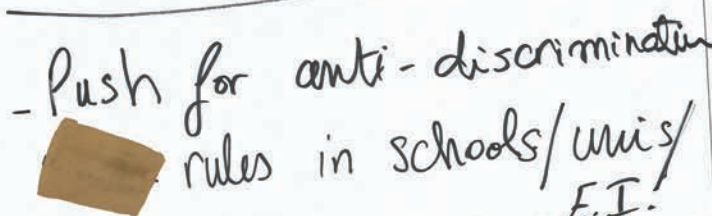 - Push for anti-discrimination
rules in schools/unis/
F.I.